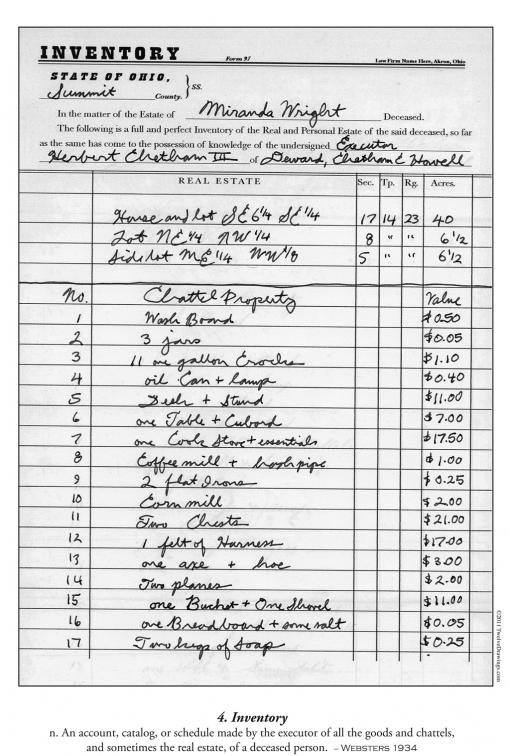 INVENTORY Form 97 Law Firm Name Here, Akron, Ohio
STATE OF OHIO,
Summit County. } SS.
In the matter of the Estate of Miranda Wright Deceased.
The following is a full and perfect Inventory of the Real and Personal Estate of the said deceased, so far
as the same has come to the possession of knowledge of the undersigned Executor
Herbert Chetham III of Deward, Chetham & Howell
REAL ESTATE Sec. Tp. Rg. Acres.
House and lot SE 6 1/4 SE 1/4 17 14 23 40
Lot NE 1/4 NW 1/4 8 " " 6 1/2
Side lot ME 1/4 5 " " 6 1/2
No. Chattel Property Value
1 Wash Board $0.50
2 3 jars $0.05
3 11 one gallon Crocks $1.10
4 oil Can + lamp $0.40
5 Desk + Stand $11.00
6 one Table + Cubord $7.00
7 one Cook Stove + essentials $17.50
8 Coffee mill + pipe $1.00
9 2 flat Irons $0.25
10 Corn mill $2.00
11 Two Chests $21.00
12 1 felt of Harness $17.00
13 one axe + hoe $3.00
14 Two planes $2.00
15 one Bucket + One Shovel $11.00
16 one Breadboard + some salt $0.05
17 Two kegs of Soap $0.25
©2011 TwelveDrawings.com
4. Inventory
n. An account, catalog, or schedule made by the executor of all the goods and chattels,
and sometimes the real estate, of a deceased person. – WEBSTERS 1934